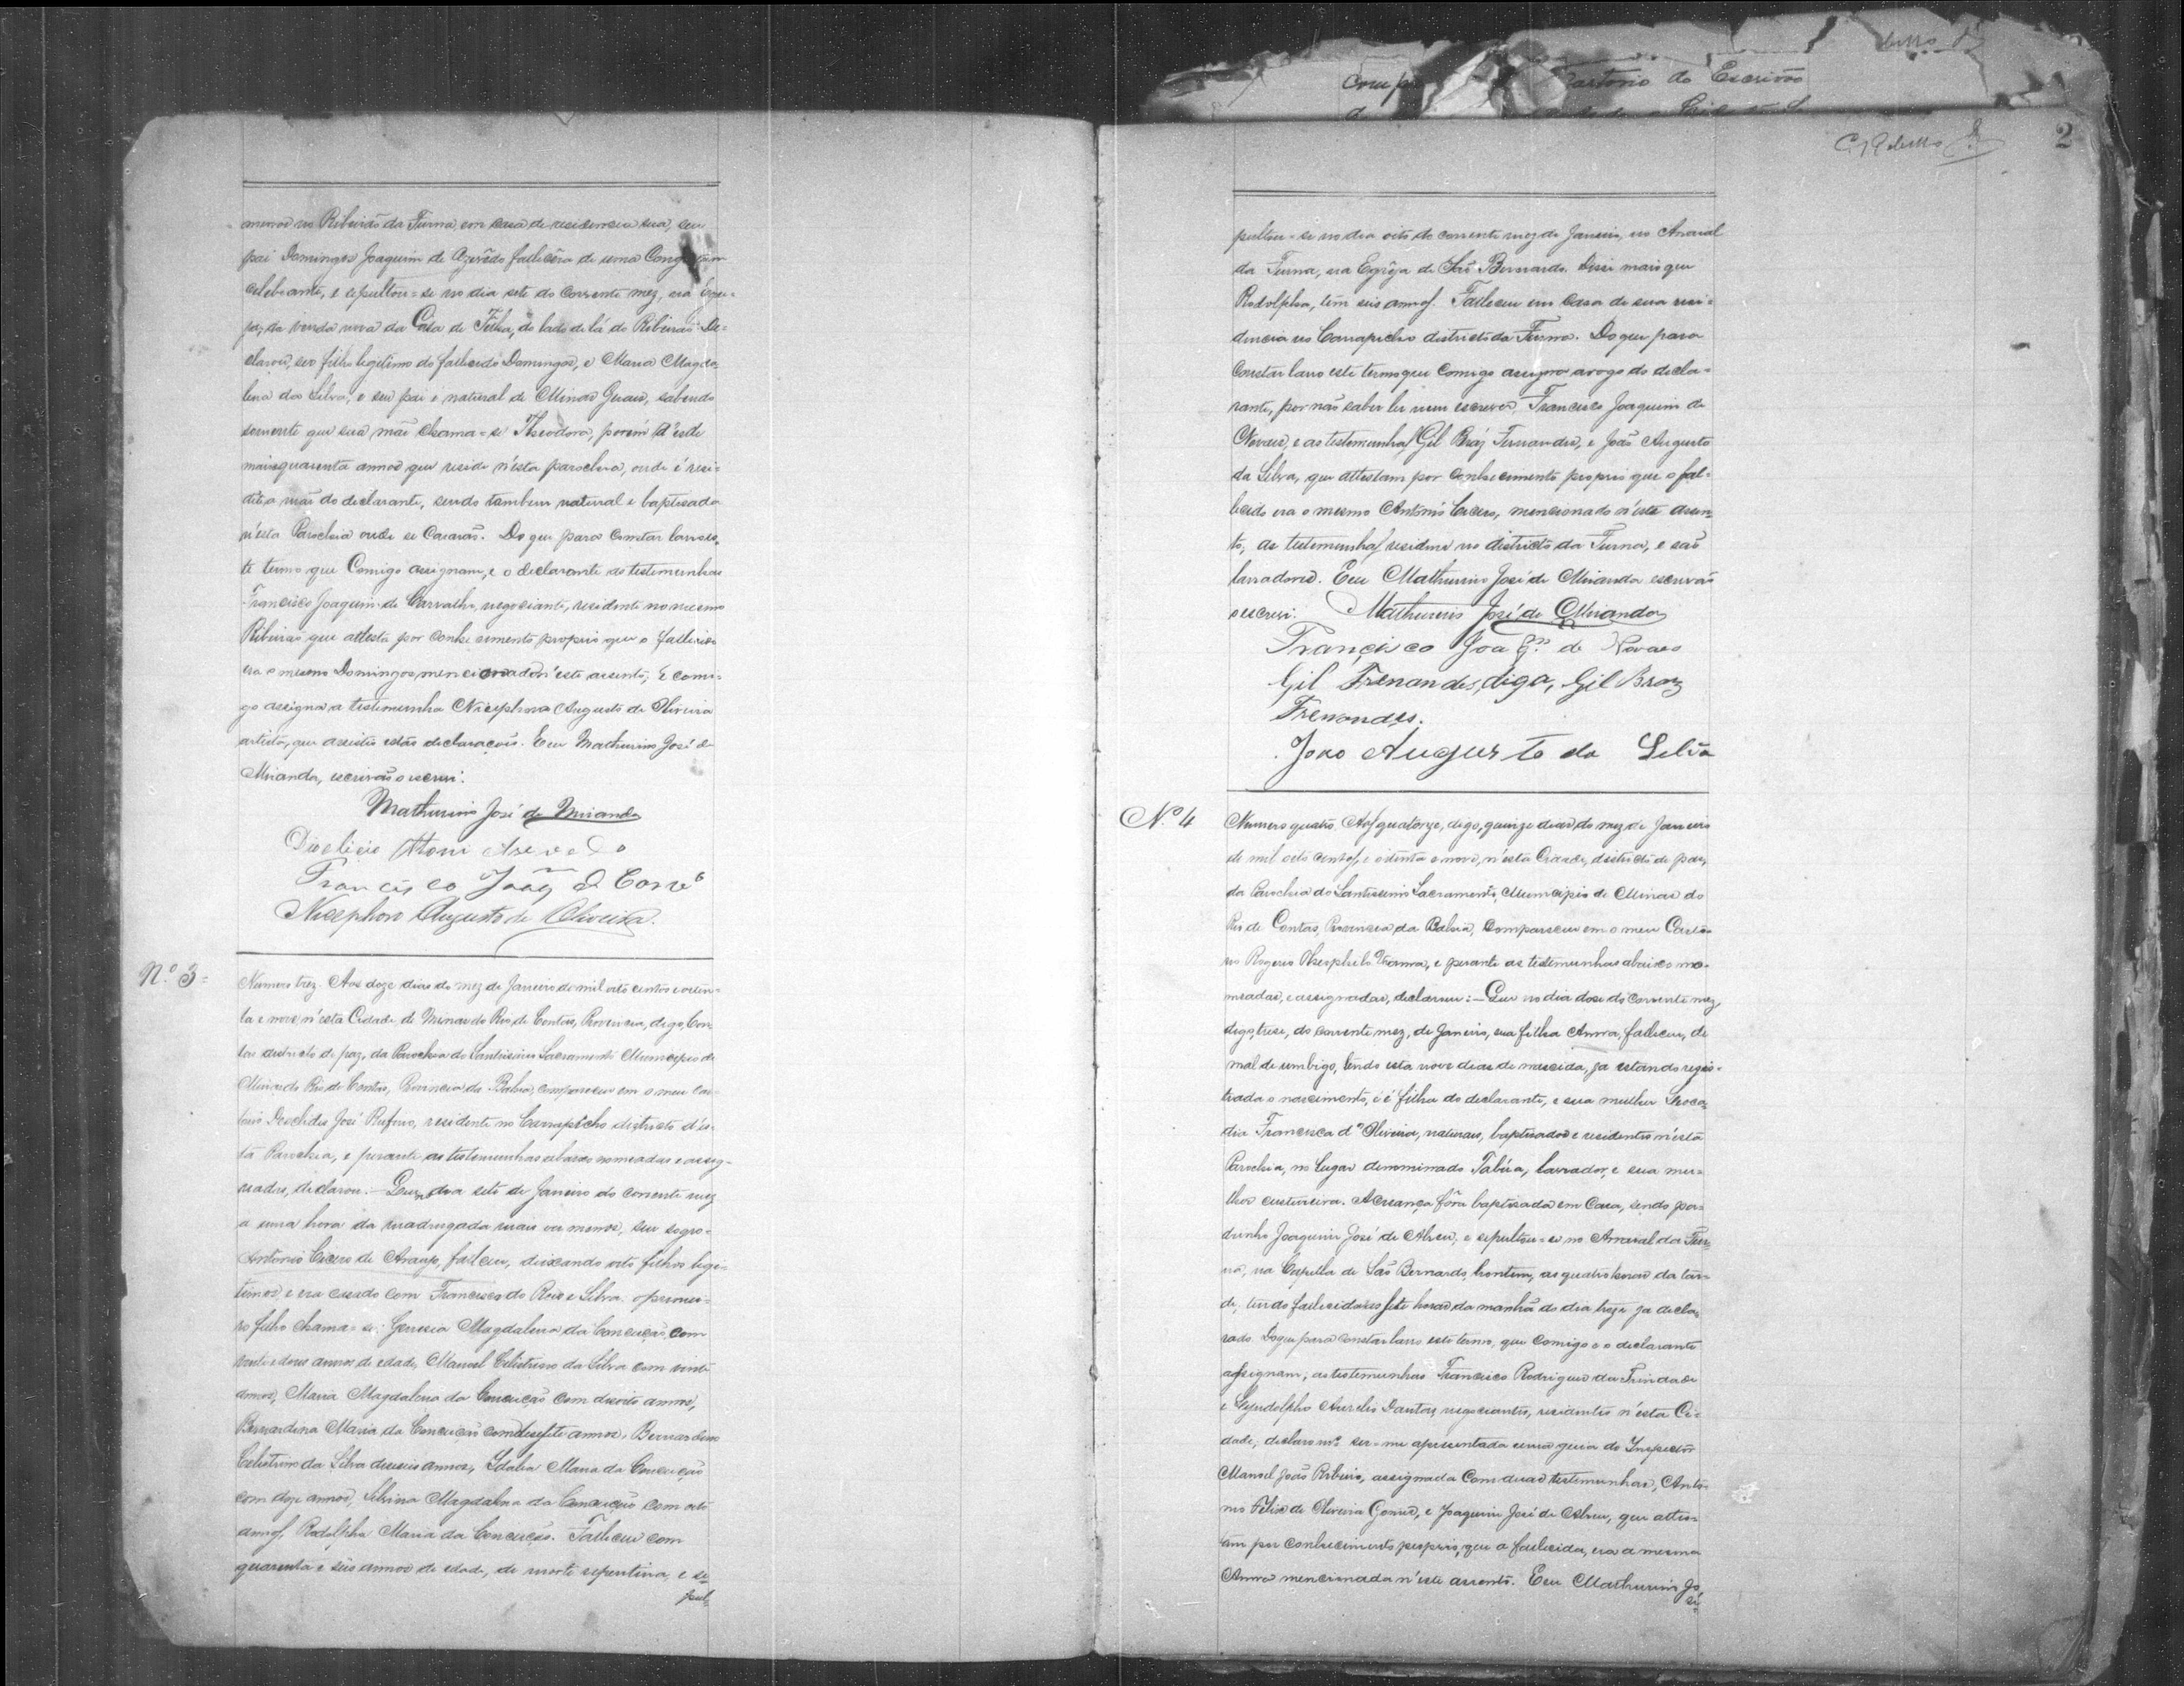 menos no Ribeirão da Furna, em casa de residencia sua, seu
pai Domingos Joaquim de Azevêdo fallecêra de uma Cong
celebrante, e sepultou-se no dia sete do corrente mez, na Egre-
ja, da venda nova da Casa de Telha, do lado de lá do Ribeirão. De-
clarou, ser filho legitimo do fallecido Domingos, e Maria Magda-
lena da Silva, e seu pai é natural de Minas Geraes, sabendo
somente que sua mãe chama-se Theodora, porem á este
mais quarenta annos que reside n'esta parochia, onde é resi-
dite a mãe do declarante, sendo tambem natural e baptisada
n'esta Parochia onde se casarão. Do que para constar lavro es-
te termo que Comigo assignam, e o declarante as testemunhas
Francisco Joaquim de Carvalho, negociante, residente no mesmo
Ribeirão que attesta por conhecimento proprio que o fallecido
era o mesmo Domingos mencionado n'este assento; E comi-
go assigna a testemunha Nicephoro Augusto de Oliveira
artista, que assistio estas declaraçoes. Eeu Mathurino José de
Miranda, escrivão o escrevi.
Mathurino José de Miranda
Dioclicio Azevedo
Francisco Joaqm
Nicephoro Augusto de Oliveira.
N.º 3=
Numero trez. Aos doze dias do mez de Janeiro de mil oito centos e oiten-
ta e nove, n'esta Cidade de Minas do Rio de Contas, Provincia, digo, Con-
tas districto de paz, da Parochia do Santissimo Sacramento Municipio de
Minas do Rio de Contas, Provincia da Bahia, compareceu em o meu car-
torio José Rufino, residente no Carrapicho districto d'es-
ta Parochia, e perante as testemunhas abaixo nomeadas e assig-
nadas, declarou:—Que no dia sete de Janeiro do corrente mez
a uma hora da madrugada mais ou menos, seu sogro-
Antonio Cicero de Araujo, falleceu, deixando oito filhos legi-
timos e era casado com Francisca do Reis e Silva. o primei-
ro filho chama-se: Magdalena da Conceição, com
vinte e dous annos de edade, Manoel Celistrino da Silva com vinte
annos, Maria Magdalena da Conceição com desoito annos,
Bernardina Maria da Conceição com desesete annos, Bernardino
Celistrino da Silva deseseis annos, Idalia Maria da Conceição
com doze annos, Silvina Magdalena da Conceição com oito
annos, Rodolpha Maria da Conceição. Falleceu com
quarenta e seis annos de edade, de morte repentina, e se-
pul-
Cartorio do Escrivão
2
pultou-se no dia oito do corrente mez de Janeiro, no Arraial
da Furna, na Egrêja de São Bernardo. Disse mais que
Rodolpha, tem seis annos. Falleceu em casa de sua resi-
dencia no Carrapicho districto da Furna. Do que para
constar lavro este termo que comigo assigna arogo do decla-
rante, por não saber ler nem escrever, Francisco Joaquim de
Novaes, e as testemunhas Gil Bráz Fernandes, e João Augusto
da Silva, que attestam por conhecimento proprio que o fal-
lecido era o mesmo Antonio Cicero, mencionado n'este assen-
to; as testemunhas residem no districto da Furna, e são
lavradores. Eeu Mathurino José de Miranda escrivão
o escrevi. Mathurino José de Miranda
Francisco Joaqm. de Novaes
Gil Frenandes, digo, Gil Braz
Frenandes.
João Augusto da Silva
N.º 4
Numero quatro. Aos quatorze, digo, quinze dias do mez de Janeiro
de mil oito centos, e oitenta e nove, n'esta Cidade, districto de paz,
da Parochia do Santissimo Sacramento, Municipio de Minas do
Rio de Contas, Provincia da Bahia, compareceu em o meu Carto-
rio Rogerio Vianna, e perante as testemunhas abaixo no-
measdas, e assignadas, declarou:—Que no dia dose do corrente mez,
digo, trese, do corrente mez, de Janeiro, sua filha Anna, falleceu, de
mal de umbigo, tendo esta nove dias de nascida, ja estando regis-
trada o nascimento, é é filha do declarante, e sua mulher Leoca-
dia Francisca d'Oliveira, naturaes, baptisados e residentes n'esta
Parochia, no Lugar denominado Tabúa, lavrador, e sua mu-
lher custureira. A creança fôra baptisada em Casa, sendo pa-
drinho Joaquim José de Abreu, e sepultou-se no Arraial da Fur-
na, na Capella de São Bernardo, hontem, as quatro horas da tar-
de, tendo fallecida as sete horas da manhã do dia treze ja decla-
rado. Do que para constar lavro este termo, que comigo e o declarante
assignam, as testemunhas Francisco Rodrigues da Trindade
e Lyndolpho Aurelio Dantas, negociantes, residentes n'esta Ci-
dade, declaro mais ser-me apresentada uma guia do Inspector
Manoel João Ribeiro, assignada com duas testemunhas, Anto-
nio Felix de Oliveira Gomes, e Joaquim José de Abreu, que attes-
tam por conhecimento proprio, que a fallecida, era a mesma
Anna mencionada n'este assento. Eeu Mathurino Jo-
sé